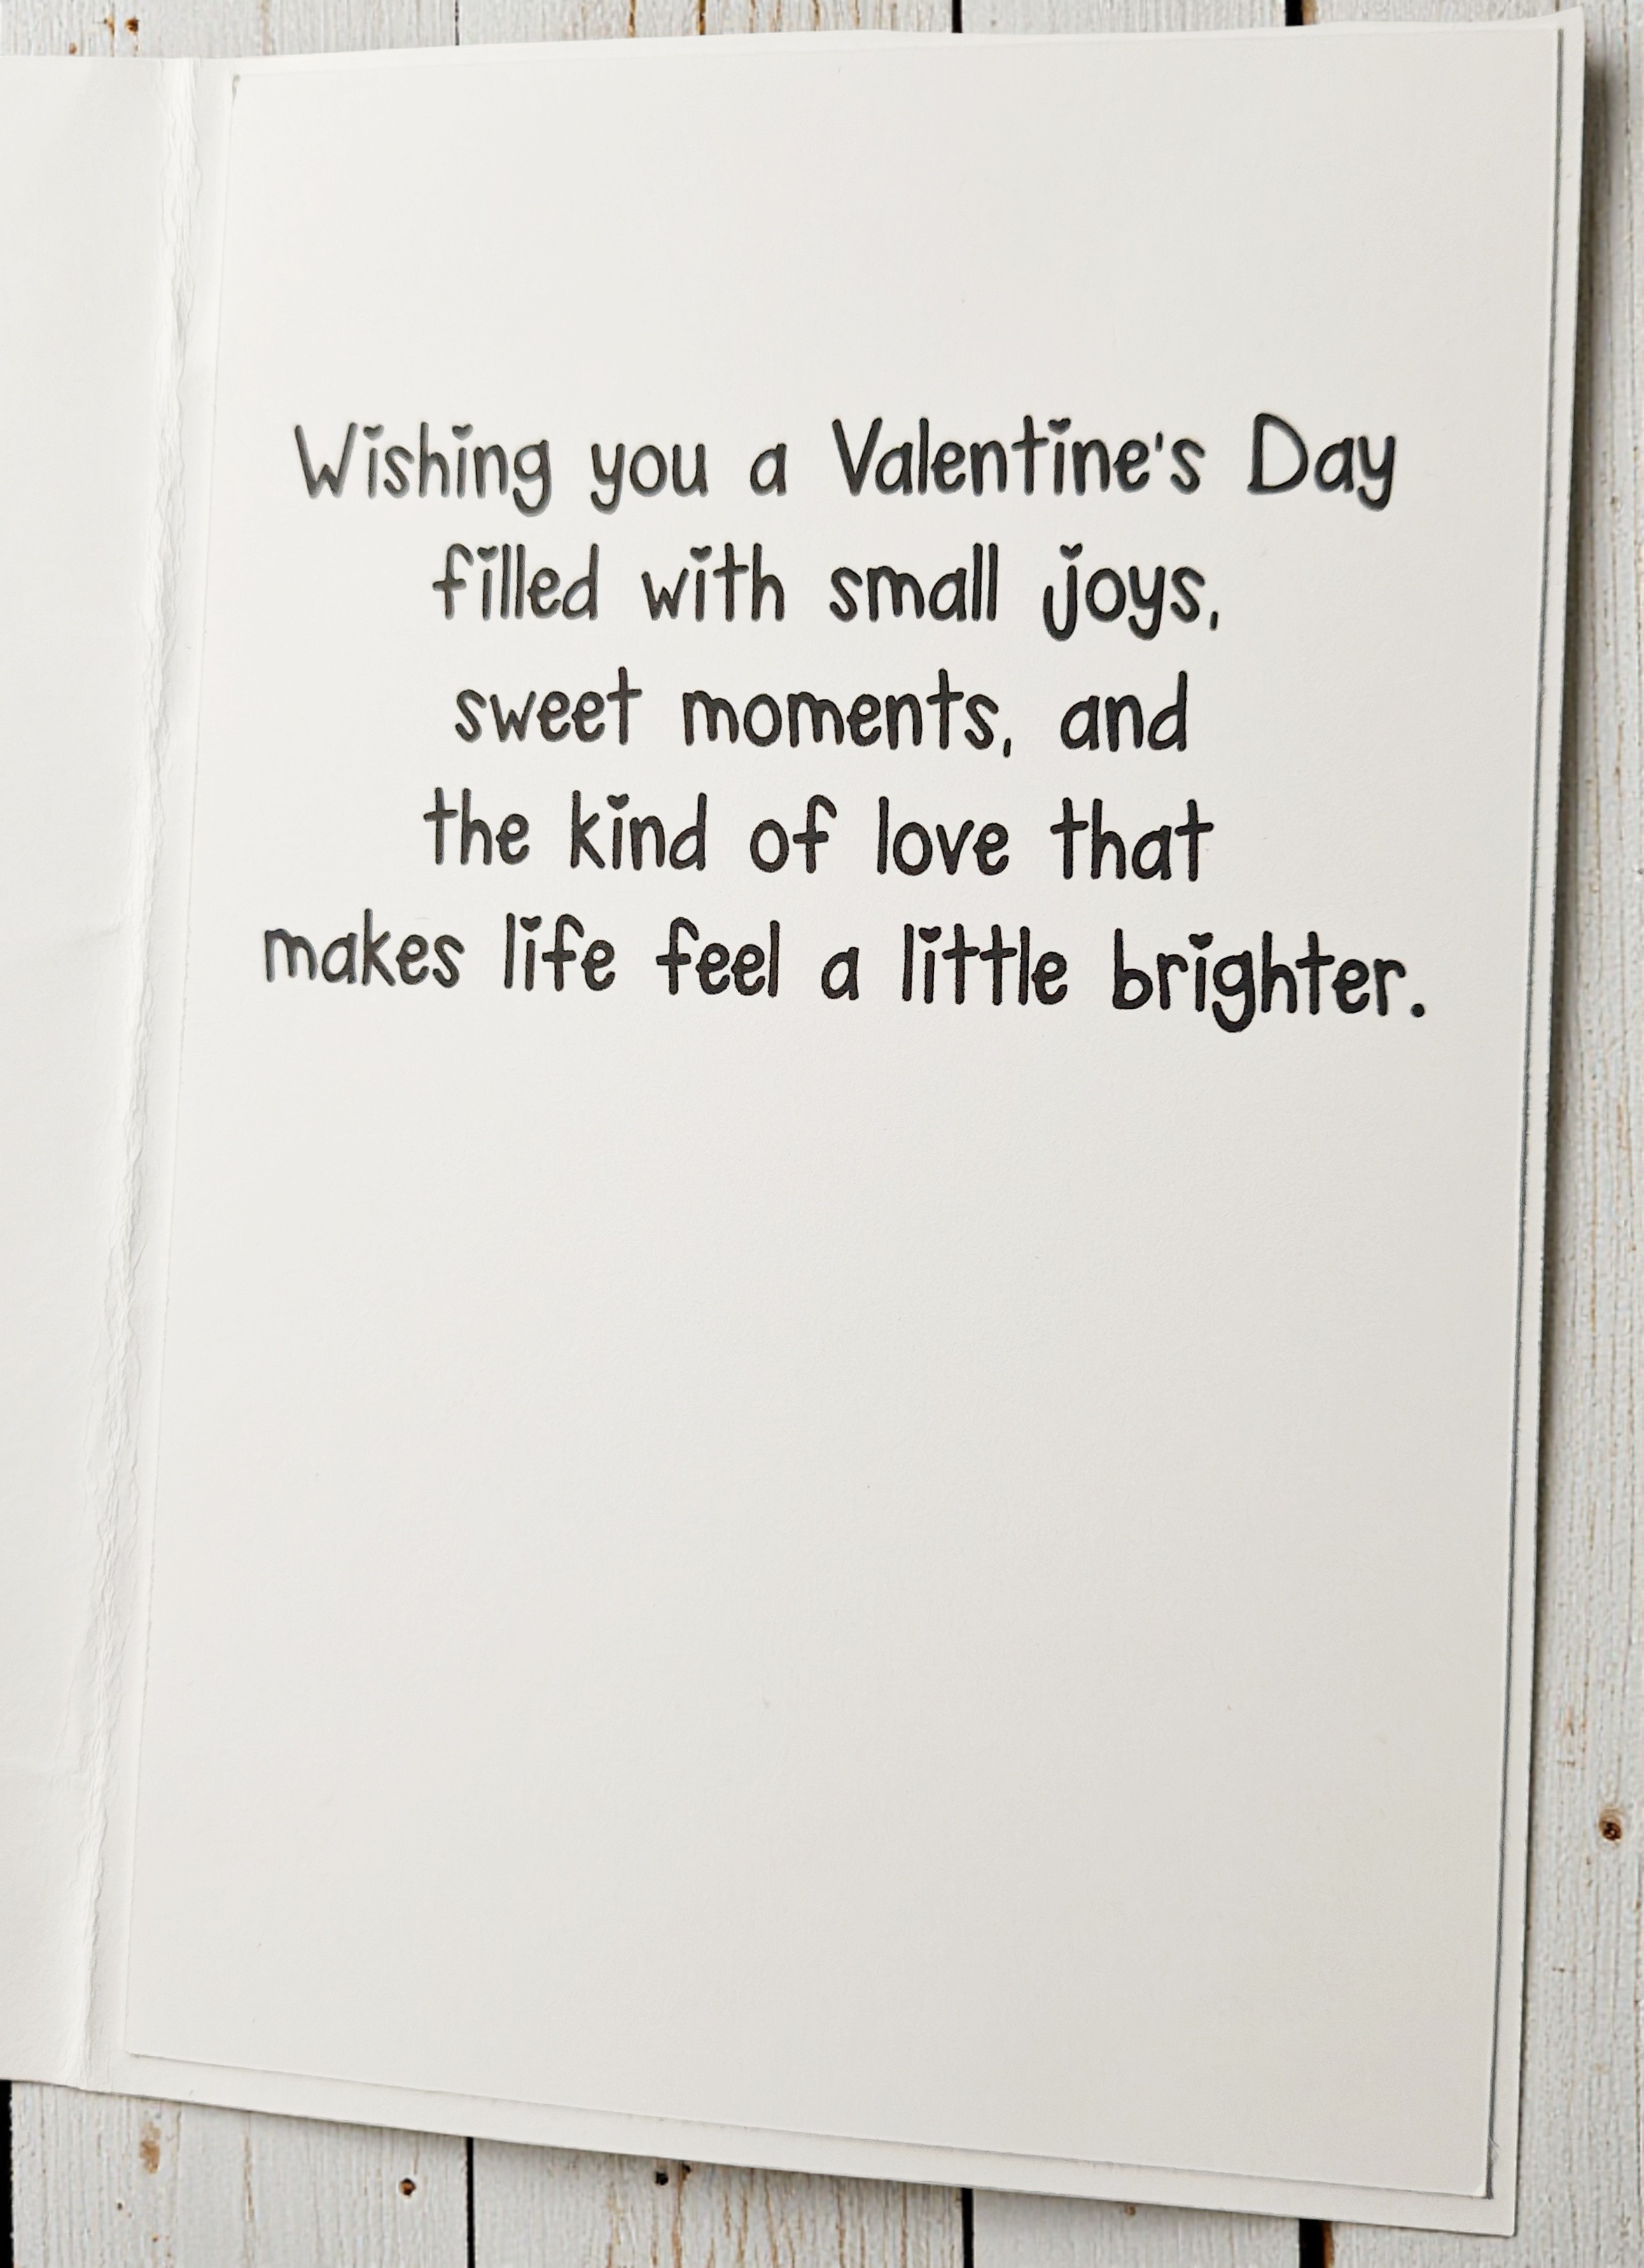 Wishing you a Valentine's Day
filled with small joys,
sweet moments, and
the kind of love that
makes life feel a little brighter.